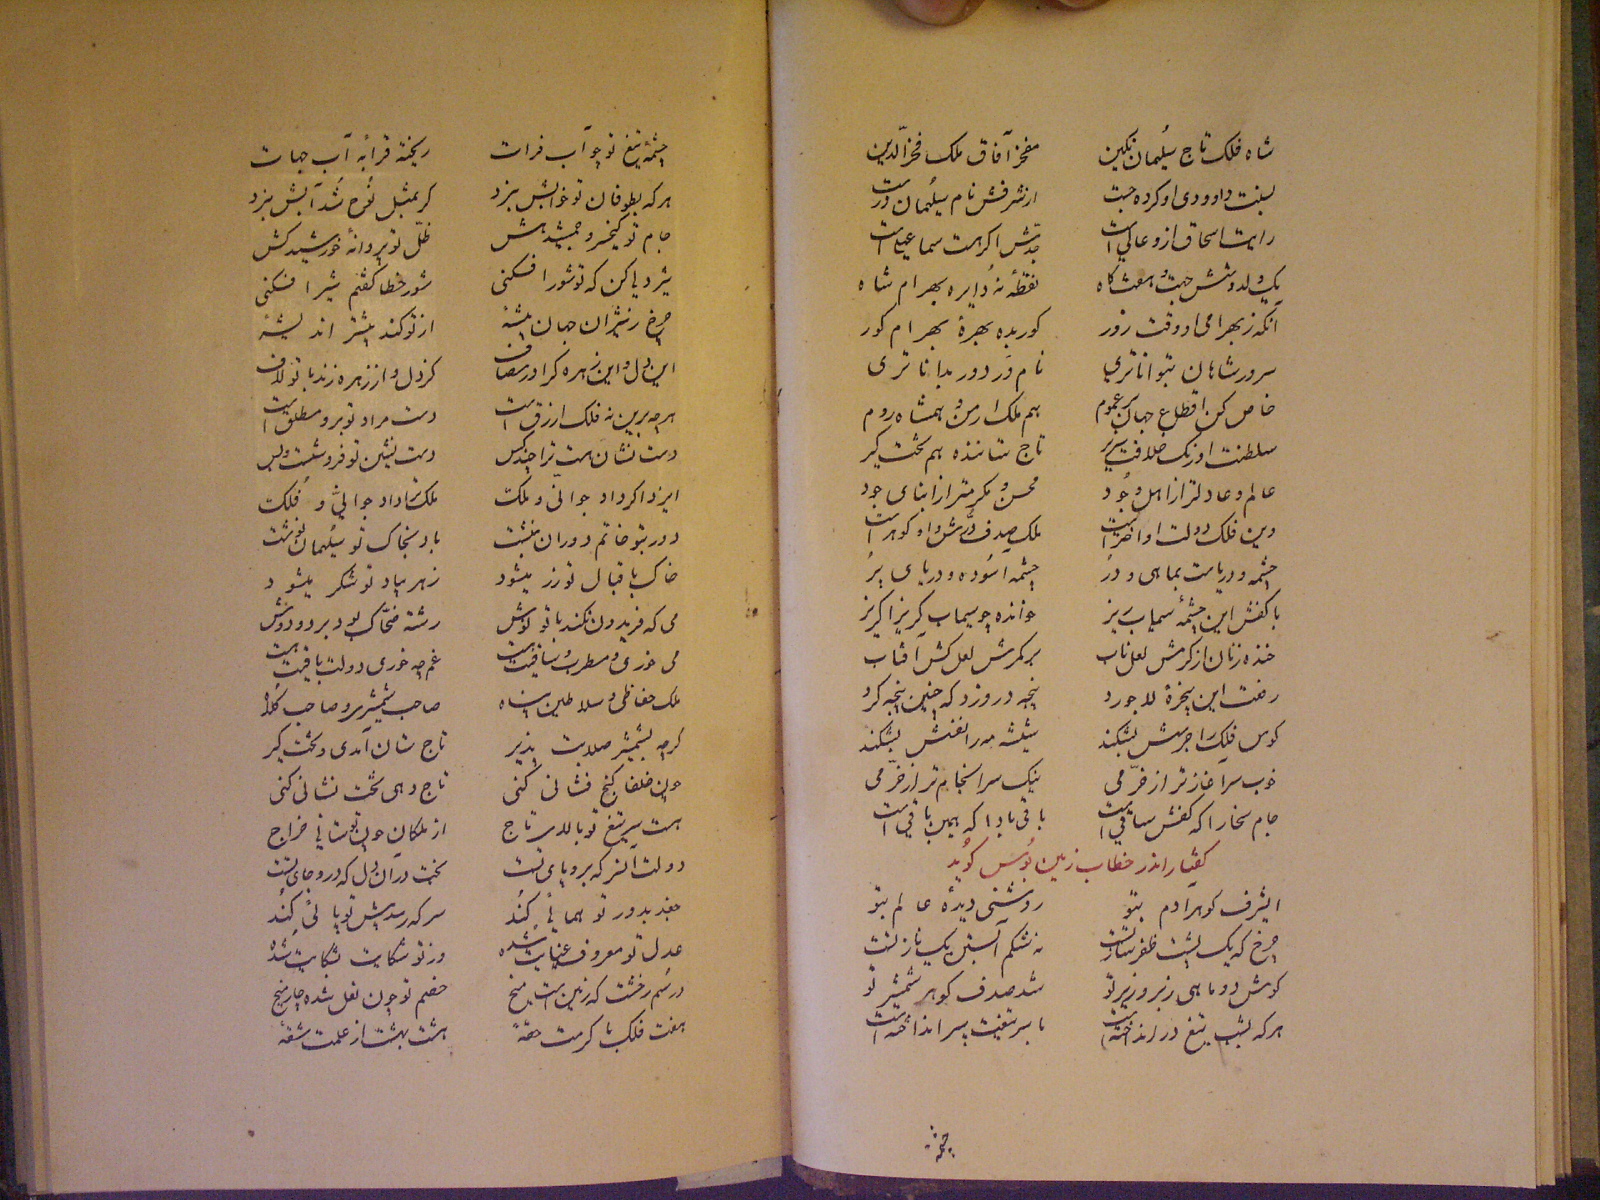 شاه فلک تاج سلیمان نگین مفخر آفاق ملک فخر الدین
نسبت داوودی او کرده چست از شرفش نام سلیمان درست
رایت اسحاق ازو عالی است جدش اگر هست سماعیل است
یک دله شش جهت و هفت گاه نقطه نه دایره بهرام شاه
آنکه ز بهرامی او وقت زور گور بود بهره بهرام گور
سرور شاهان بتوانا تری نام ور دور بدانا تری
خاص کن اقطاع جهان بر عموم هم ملک ارمن و هم شاه روم
سلطنت اورنگ خلافت سریر تاج ستاننده هم تخت گیر
عالم و عادلتر از اهل وجود محسن و مکرمتر از ابنای جود
دین فلک دولت او اختر است ملک صدف در ش و او گوهر است
چشمه و دریاست بماهی و در چشمه آسوده و دریای پر
با کفش این چشمه سیماب ریز خوانده چو سیماب گریزا گریز
خنده زنان از کمرش لعل ناب بر کمرش لعل کش آفتاب
رفت این پنجره لاجورد پنجه درو زد که چنین پنجه کرد
کوس فلک را جرسش بشکند شیشه مه را نفسش بشکند
خوب سر آغاز تر از خرمی نیک سرانجام تر از خرمی
جام سخا را که کفش ساقی است باقی بادا که همین باقی است
گفتار اندر خطاب زمین بوس گوید
ای شرف گوهر آدم بتو روشنی دیده عالم بتو
چرخ که یک پشت ظفر ساز تست نه شکم آبستن یک ناز تست
گوش دو ماهی زبر و زیر تو شد صدف گوهر شمشیر تو
هر که بشب تیغ در انداخته است با سر تیغت سپر انداخته است
چشمه
چشمه تیغ تو چو آب فرات ریخته قرابه آب حیات
هر که بطوفان تو خوابش ببرد گر بمثل نوح شد آبش ببرد
جام تو کیخسرو جمشید هش ظل تو پروانه خورشید کش
شیر دلی کن که تو شیر افکنی شیر خطا گفتم شیر افکنی
چرخ ز شیران جهان بیشه از تو کند بیشتر اندیشه
این دل و این زهره کرا در مصاف کز دل و از زهره زند با تو لاف
هر چه بزیر نه فلک ازرق است دست مراد تو برو مطلق است
دست نشان هست ترا چند کس دست نشین تو فرشته است و بس
ایزد اگر داد جوانی و ملکت ملک ترا داد جوانی و فلکت
دور بتو خاتم دوران نبشت باد بخاک تو سلیمان نوشت
خاک باقبال تو زر میشود زهر بیاد تو شکر میشود
می که فریدون نکند با تو نوش رشته ضحاک بود بر دو دوش
می خوری و مطرب و ساقیت هست غم چه خوری دولت باقیت هست
ملک حفاظی و سلاطین پناه صاحب شمشیری و صاحب کلاه
گر چه بشمشیر صلابت پذیر تاج ستان آمدی و تخت گیر
چون خلفا گنج فشانی کنی تاج دهی تخت نشانی کنی
هست سر تیغ تو بالای تاج از ملکان چون نستانی خراج
دولت آن سر که برو پای تست بخت در آن دل که درو جای تست
جغد بدور تو همایی کند سر که رسد پیش تو پایی کند
عدل تو معروف عنایت شده وز تو شکایت بشکایت شده
در سم رخشت که زمین است میخ خصم تو چون نعل شده چار میخ
هفت فلک با کرمت حقه هشت بهشت از علمت شقه